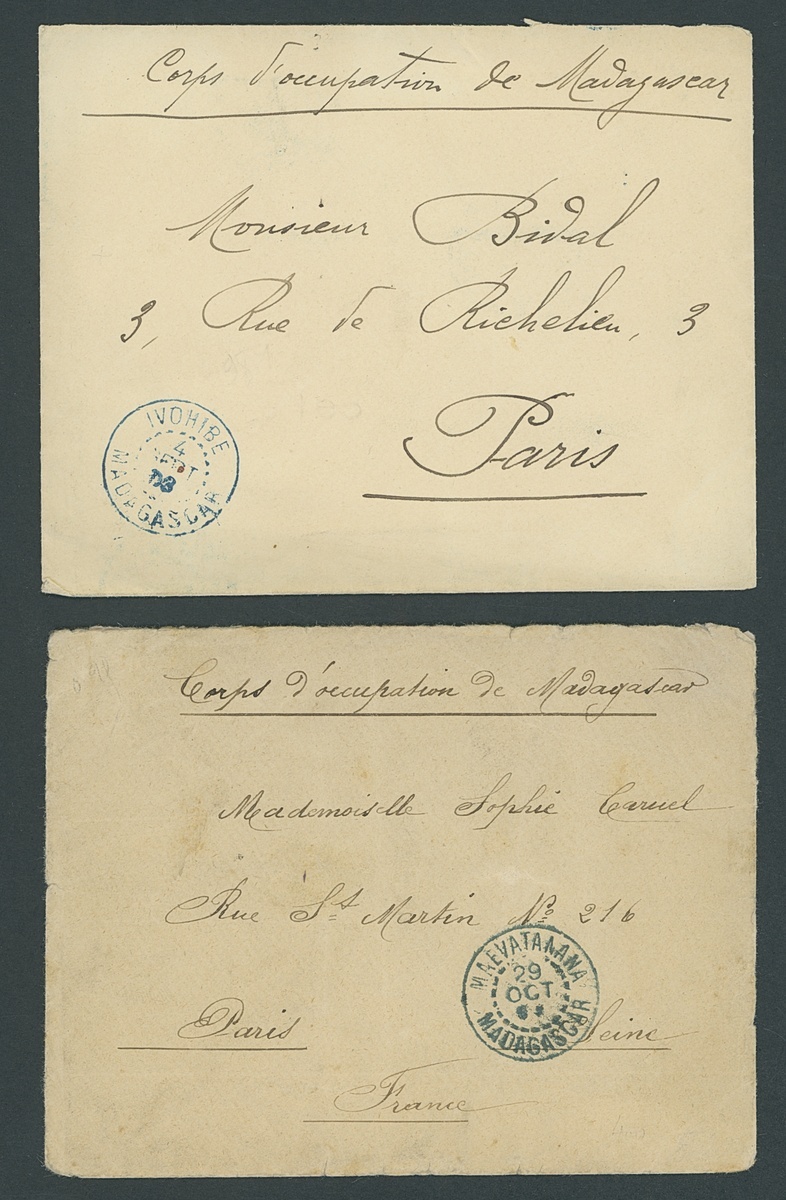 Corps d'occupation de Madagascar
Monsieur Bidal
3, Rue de Richelieu, 3
Paris
IVOHIBE
4
SEPT
MADAGASCAR
Corps d'occupation de Madagascar
Mademoiselle Sophie Caruel
Rue St Martin No 216
MAEVATANANA
29
OCT
MADAGASCAR
Paris Seine
France